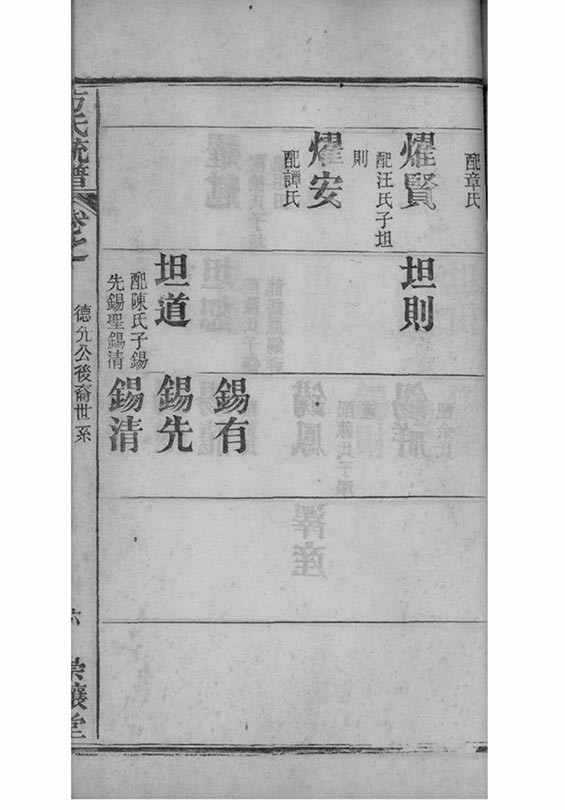 配章氏
燿賢
配汪氏子坦
則
燿安
配譚氏
坦則
坦道
配陳氏子錫
先錫聖錫清
錫有
錫先
錫清
方氏統譜
卷之
德允公後裔世系
六
崇讓堂